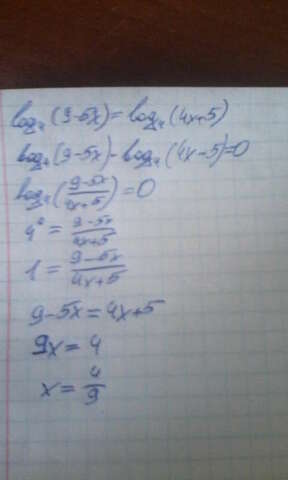 log₄(9-5x)=log₄(4x+5)
log₄(9-5x)-log₄(4x-5)=0
log₄(9-5x/4x+5)=0
4⁰=9-5x/4x+5
1=9-5x/4x+5
9-5x=4x+5
9x=4
x=4/9